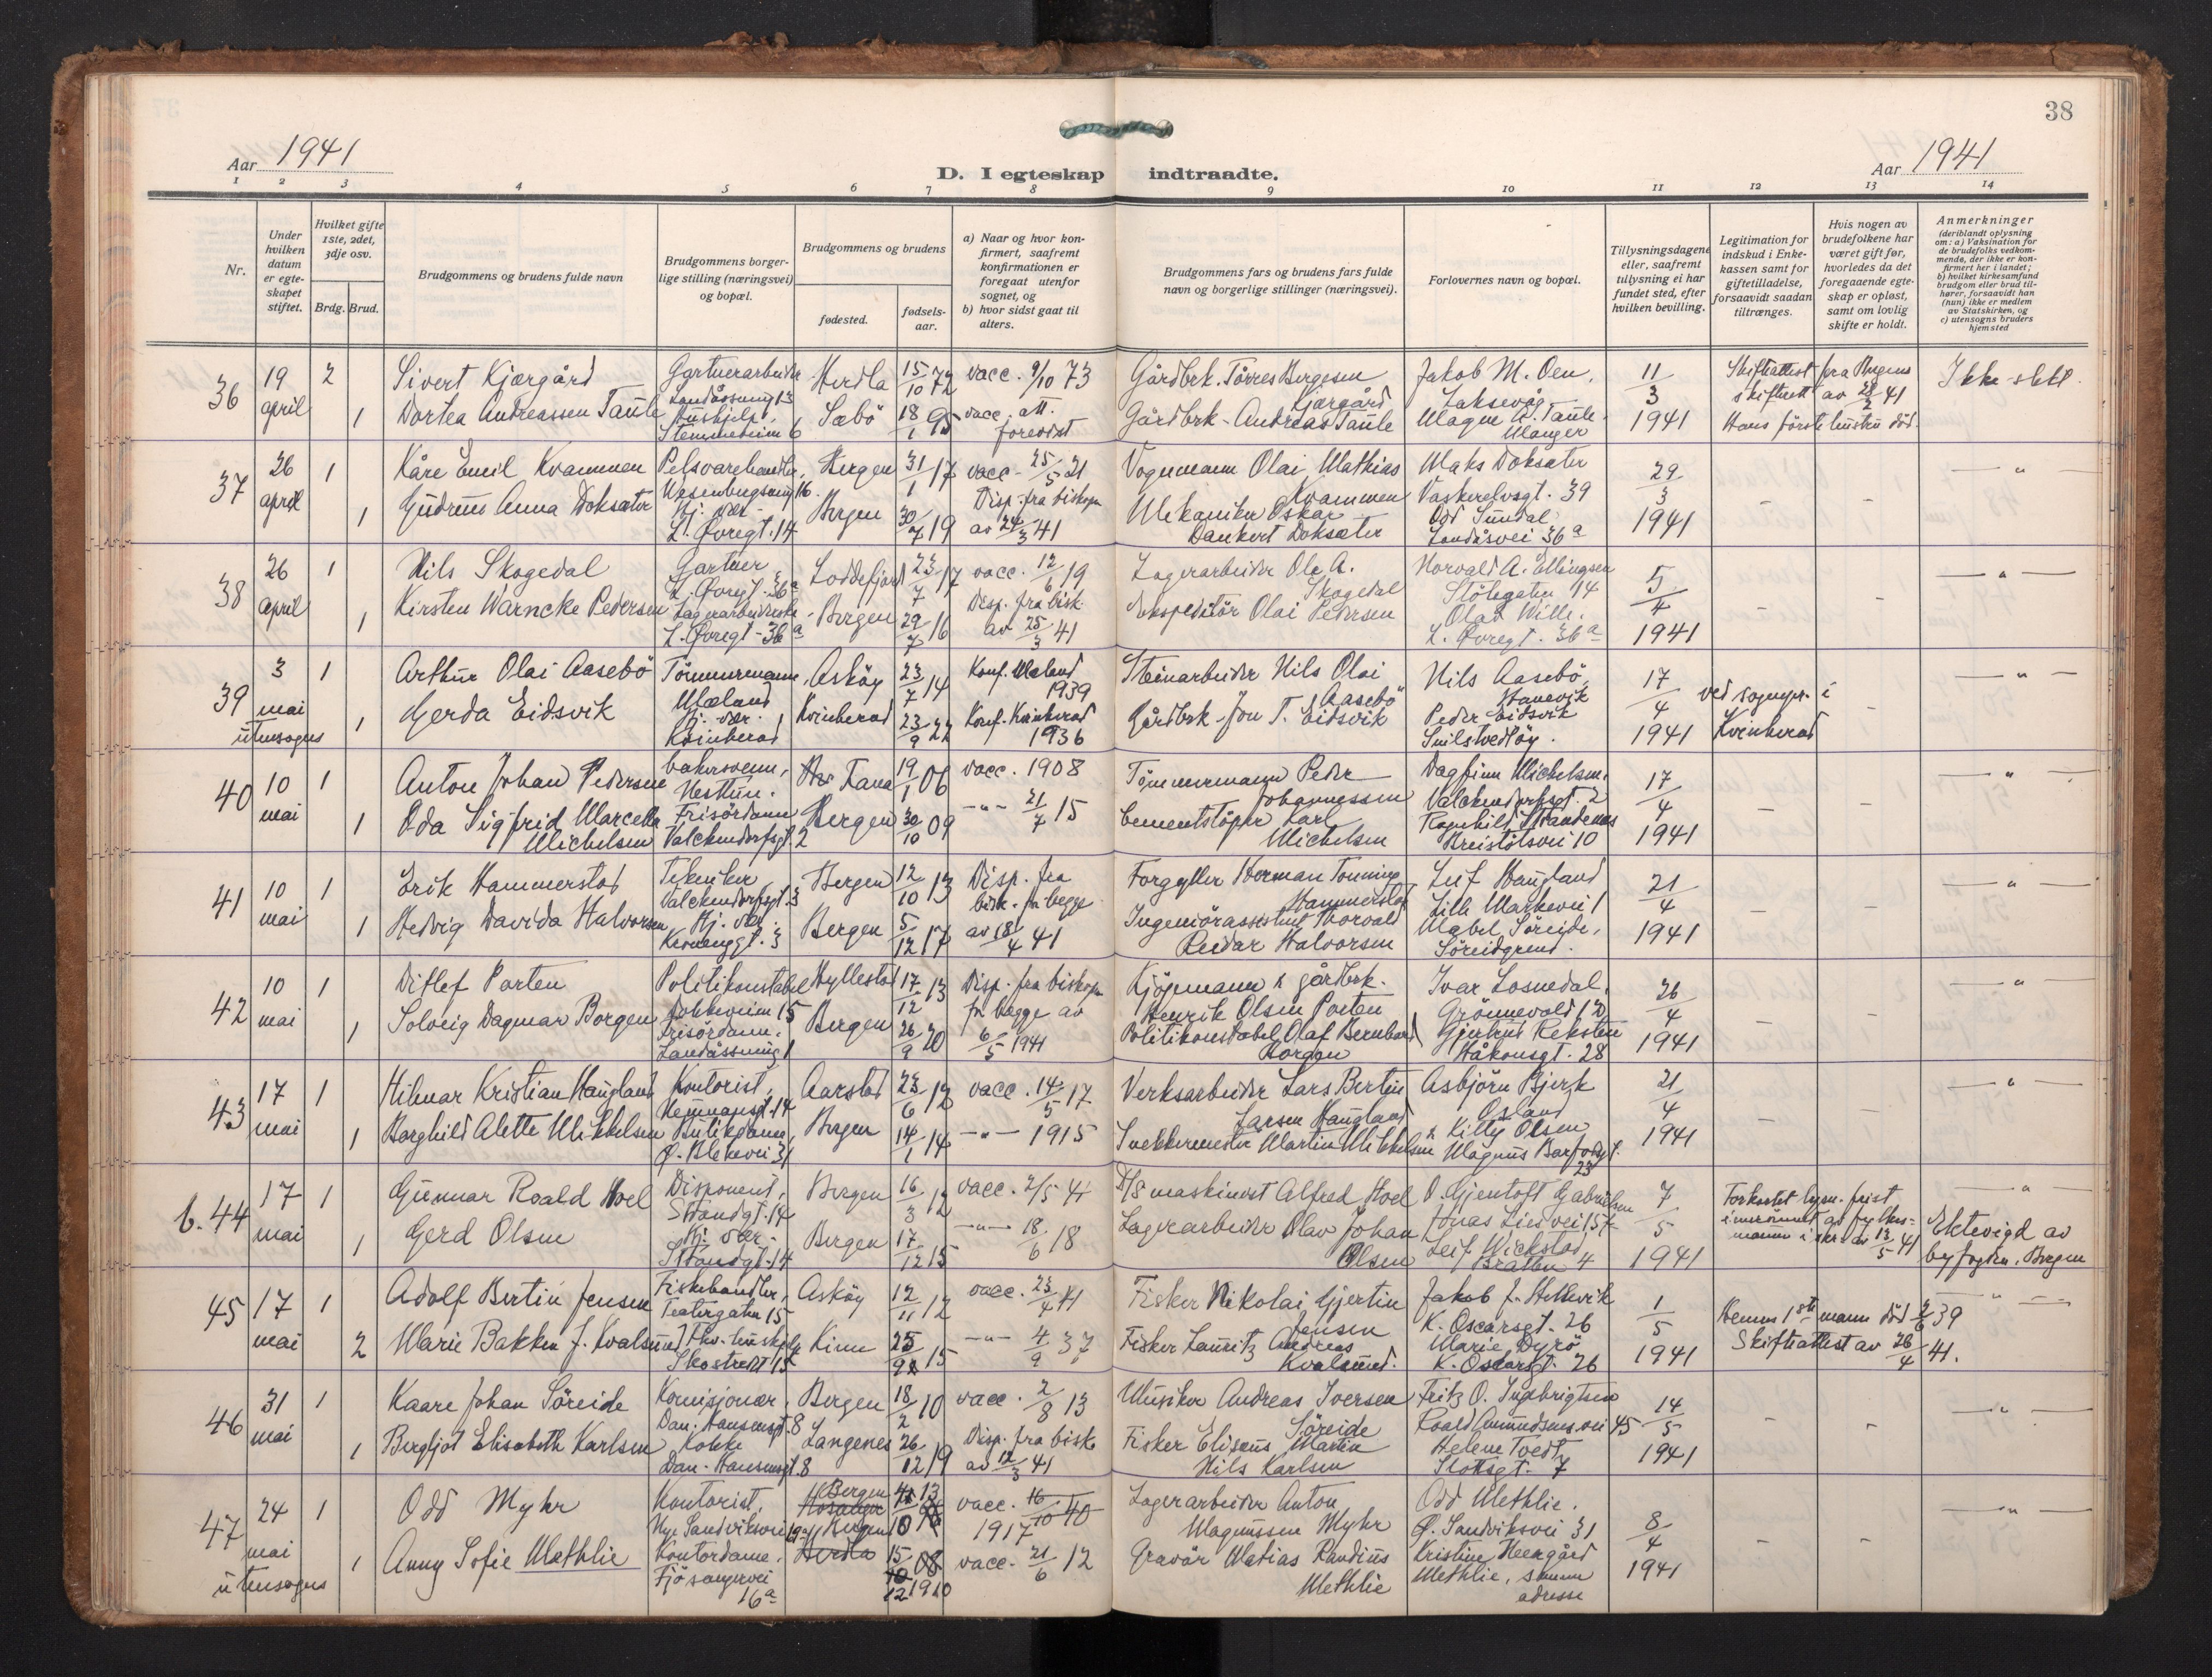 38
Aar 1941
D. I egteskap indtraadte.
Aar 1941
1 2 3 4 5 6 7 8 9 10 11 12 13 14
Nr.
Under hvilken datum er egteskapet stiftet.
Hvilket gifte 1ste, 2det, 3dje osv.
Brdg. Brud.
Brudgommens og brudens fulde navn
Brudgommens borgerlige stilling (næringsvei) og bopæl.
Brudgommens og brudens
fødested.
fødselsaar.
a) Naar og hvor konfirmert, saafremt konfirmationen er foregaat utenfor sognet, og
b) hvor sidst gaat til alters.
Brudgommens fars og brudens fars fulde navn og borgerlige stillinger (næringsvei).
Forlovernes navn og bopæl.
Tillysningsdagene eller, saafremt tillysning ei har fundet sted, efter hvilken bevilling.
Legitimation for indskud i Enkekassen samt for giftetilladelse, forsaavidt saadan tiltrænges.
Hvis nogen av brudefolkene har været gift før, hvorledes da det foregaaende egteskap er opløst, samt om lovlig skifte er holdt.
Anmerkninger
(deriblandt oplysning om: a) Vaksination for de brudefolks vedkommende, der ikke er konfirmert her i landet; b) hvilket kirkesamfund brudgom eller brud tilhører, forsaavidt han (hun) ikke er medlem av Statskirken, og c) utensogns bruders hjemsted
36 19 april 2 Sivert Kjærgård Gartnerarbeider Herdla 15/10 72 vacc. 9/10 73 Gårdbrk. Tørres Bergesen Kjærgård Jakob M. Oen, Laksevåg 11/3 1941 Skifteattest fra Bergens skifterett av 28/2 41 Ikke slekt
1 Dortea Andreassen Taule Hushjelp, Stemmeveien 6 Sæbö 18/1 95 vacc. att. forevist Gårdbrk. Andreas Taule Magne A. Taule Hans første hustru död.
37 26 april 1 Kåre Emil Kvammen Pelsvarehandler, Bergen 31/1 17 vacc. 25/5 21 Vognmann Olai Mathias Kvammen Maks Doksæter Vaskerelvsgt. 39 29/3 1941 - - "
1 Gudrun Anna Doksæter Hj. vær. L. Øvregt. 14 Bergen 30/7 19 Disp. fra biskopen av 24/3 41 Mekaniker Oskar Dankert Doksæter Odd Sundal Landåsvei 36a
38 26 april 1 Nils Skogedal Gartner L. Øvregt. 36a Loddefjord 23/7 17 vacc. 12/6 19 Lagerarbeider Ole A. Skogedal Norvald A. Ellingsen Stölegaten 14 5/4 1941 - - "
1 Kirsten Warncke Pedersen Lagerarbeiderske L. Øvregt. 36a Bergen 29/7 16 Disp. fra bisk. av 25/3 41 Ekspeditör Olai Pedersen Olav Wille. L. Øvregt. 36a
39 3 mai utensogns 1 Arthur Olai Aasebö Tömmermann, Mæland Asköy 23/7 14 Konf. Mæland 1939 Steinarbeider Nils Olai Aasebö Nils Aasebö, Hanevik 17/4 1941 ved sognepr. i Kvinherad - "
1 Gerda Eidsvik Hj. vær. Kvinherad Kvinherad 23/9 22 Konf. Kvinherad 1936 Gårdbrk. Jon T. Eidsvik Peder Eidsvik
40 10 mai 1 Anton Johan Pedersen bakersvenn, Nesttun. Fana 19/1 06 vacc. 1908 Tömmermann Peder Johannessen Dagfinn Michelsen, Valckendorfsgt. 2 17/4 1941 - - "
1 Oda Sigfrid Marcella Michelsen Frisördame Valckendorfsgt. 2 Bergen 30/10 09 " 21/7 15 Cementstöper Karl Michelsen Ragnhild Strandenes Breistölsvei 10
41 10 mai 1 Erik Hammerstad Tekniker Valckendorfsgt. 3 Bergen 12/10 13 Disp. fra bisk. for begge av 18/4 41 Forgyller Herman Tonning Hammerstad Leif Haugland Lille Markevei 1 21/4 1941 - - "
1 Hedvig Davida Halvorsen Hj. vær. Bergen 5/12 17 Ingeniörassistent Thorvald Reidar Halvorsen Mabel Söreide, Söreidgrend.
42 10 mai 1 Ditlef Porten Politikonstabel Dokkeveien 15 Hyllestad 17/12 13 Disp. fra biskopen for begge av 6/5 1941 Kjöpmann & gårdbrk. Henrik Olsen Porten Ivar Losnedal, 26/4 1941 - - "
1 Solveig Dagmar Borgen Frisördame. Bergen 26/9 20 Politikonstabel Olaf Bernhard Borgen Gjertrud Reksten Håkonsgt. 28
43 17 mai 1 Hilmar Kristian Haugland Kontorist, Aarstad 23/6 12 vacc. 14/5 17 Verksarbeider Lars Bertin Larsen Haugland Asbjörn Bjerk Osland 21/4 1941 - - "
1 Borghild Alette Mikkelsen Butikdame, Ø. Blekevei 31 Bergen 14/1 14 " 1915 Snekkermester Martin Mikkelsen & Kitty Olsen Magnus Barfotsgt. 23
b. 44 17 mai 1 Gunnar Roald Hoel Disponent, Strandgt. 14 Bergen 16/3 12 vacc. 2/5 41 D/S maskinist Alfred Hoel O. Gjentoft Gabrielsen Jonas Liesvei 57 7/5 1941 Forkortet lysn. frist innrömmet av fylkesmann i skr. av 13/5 41 "
1 Gerd Olsen Hj. vær. Strandgt. 14 Bergen 17/12 15 " 18/6 18 Lagerarbeider Olav Johan Olsen Leif Wickstad Bratten 4 Ektevigd av byfogden i Bergen
45 17 mai 1 Adolf Bertin Jensen Fiskehandler, Teatergaten 15 Asköy 12/11 12 vacc. 23/4 41 Fisker Nikolai Gjertin Jensen Jakob J. Hellevik K. Oscarsgt. 26 1/5 1941 Hennes 1ste mann död 2/3 39 "
2 Marie Bakken f. Kvalsund Skostredt 15 Kinn 25/9 15 " 4/9 37 Fisker Lauritz Andreas Kvalsund. Marie Dyrö K. Oscarsgt. 26 Skifteattest av 26/4 41.
46 31 mai 1 Kaare Johan Söreide Komisjonær, Dan. Hansensgt. 8 Bergen 18/2 10 vacc. 2/8 13 Musiker Andreas Iversen Söreide Fritz O. Ingebrigtsen Roald Amundsens vei 45 14/5 1941 - - "
1 Bergljot Elisabeth Karlsen Kokke Dan. Hansensgt. 8 Langenes 26/12 19 Disp. fra bisk. av 12/3 41 Fisker Eliseus Martin Nils Karlsen Helene Tvedt, Slottsgt. 7
47 24 mai utensogns 1 Odd Myhr Kontorist, Nye Sandviksvei Bergen 13 vacc. 16/10 40 1917 Lagerarbeider Anton Magnussen Myhr Odd Methlie. Ø. Sandviksvei 31 8/4 1941 - - "
1 Anny Sofie Methlie Kontordame. Fjösangervei 16a Bergen Herdla 15/12 08 1910 vacc. 21/6 12 Gravör Matias Randius Methlie Kristine Neergård Methlie, samme adresse